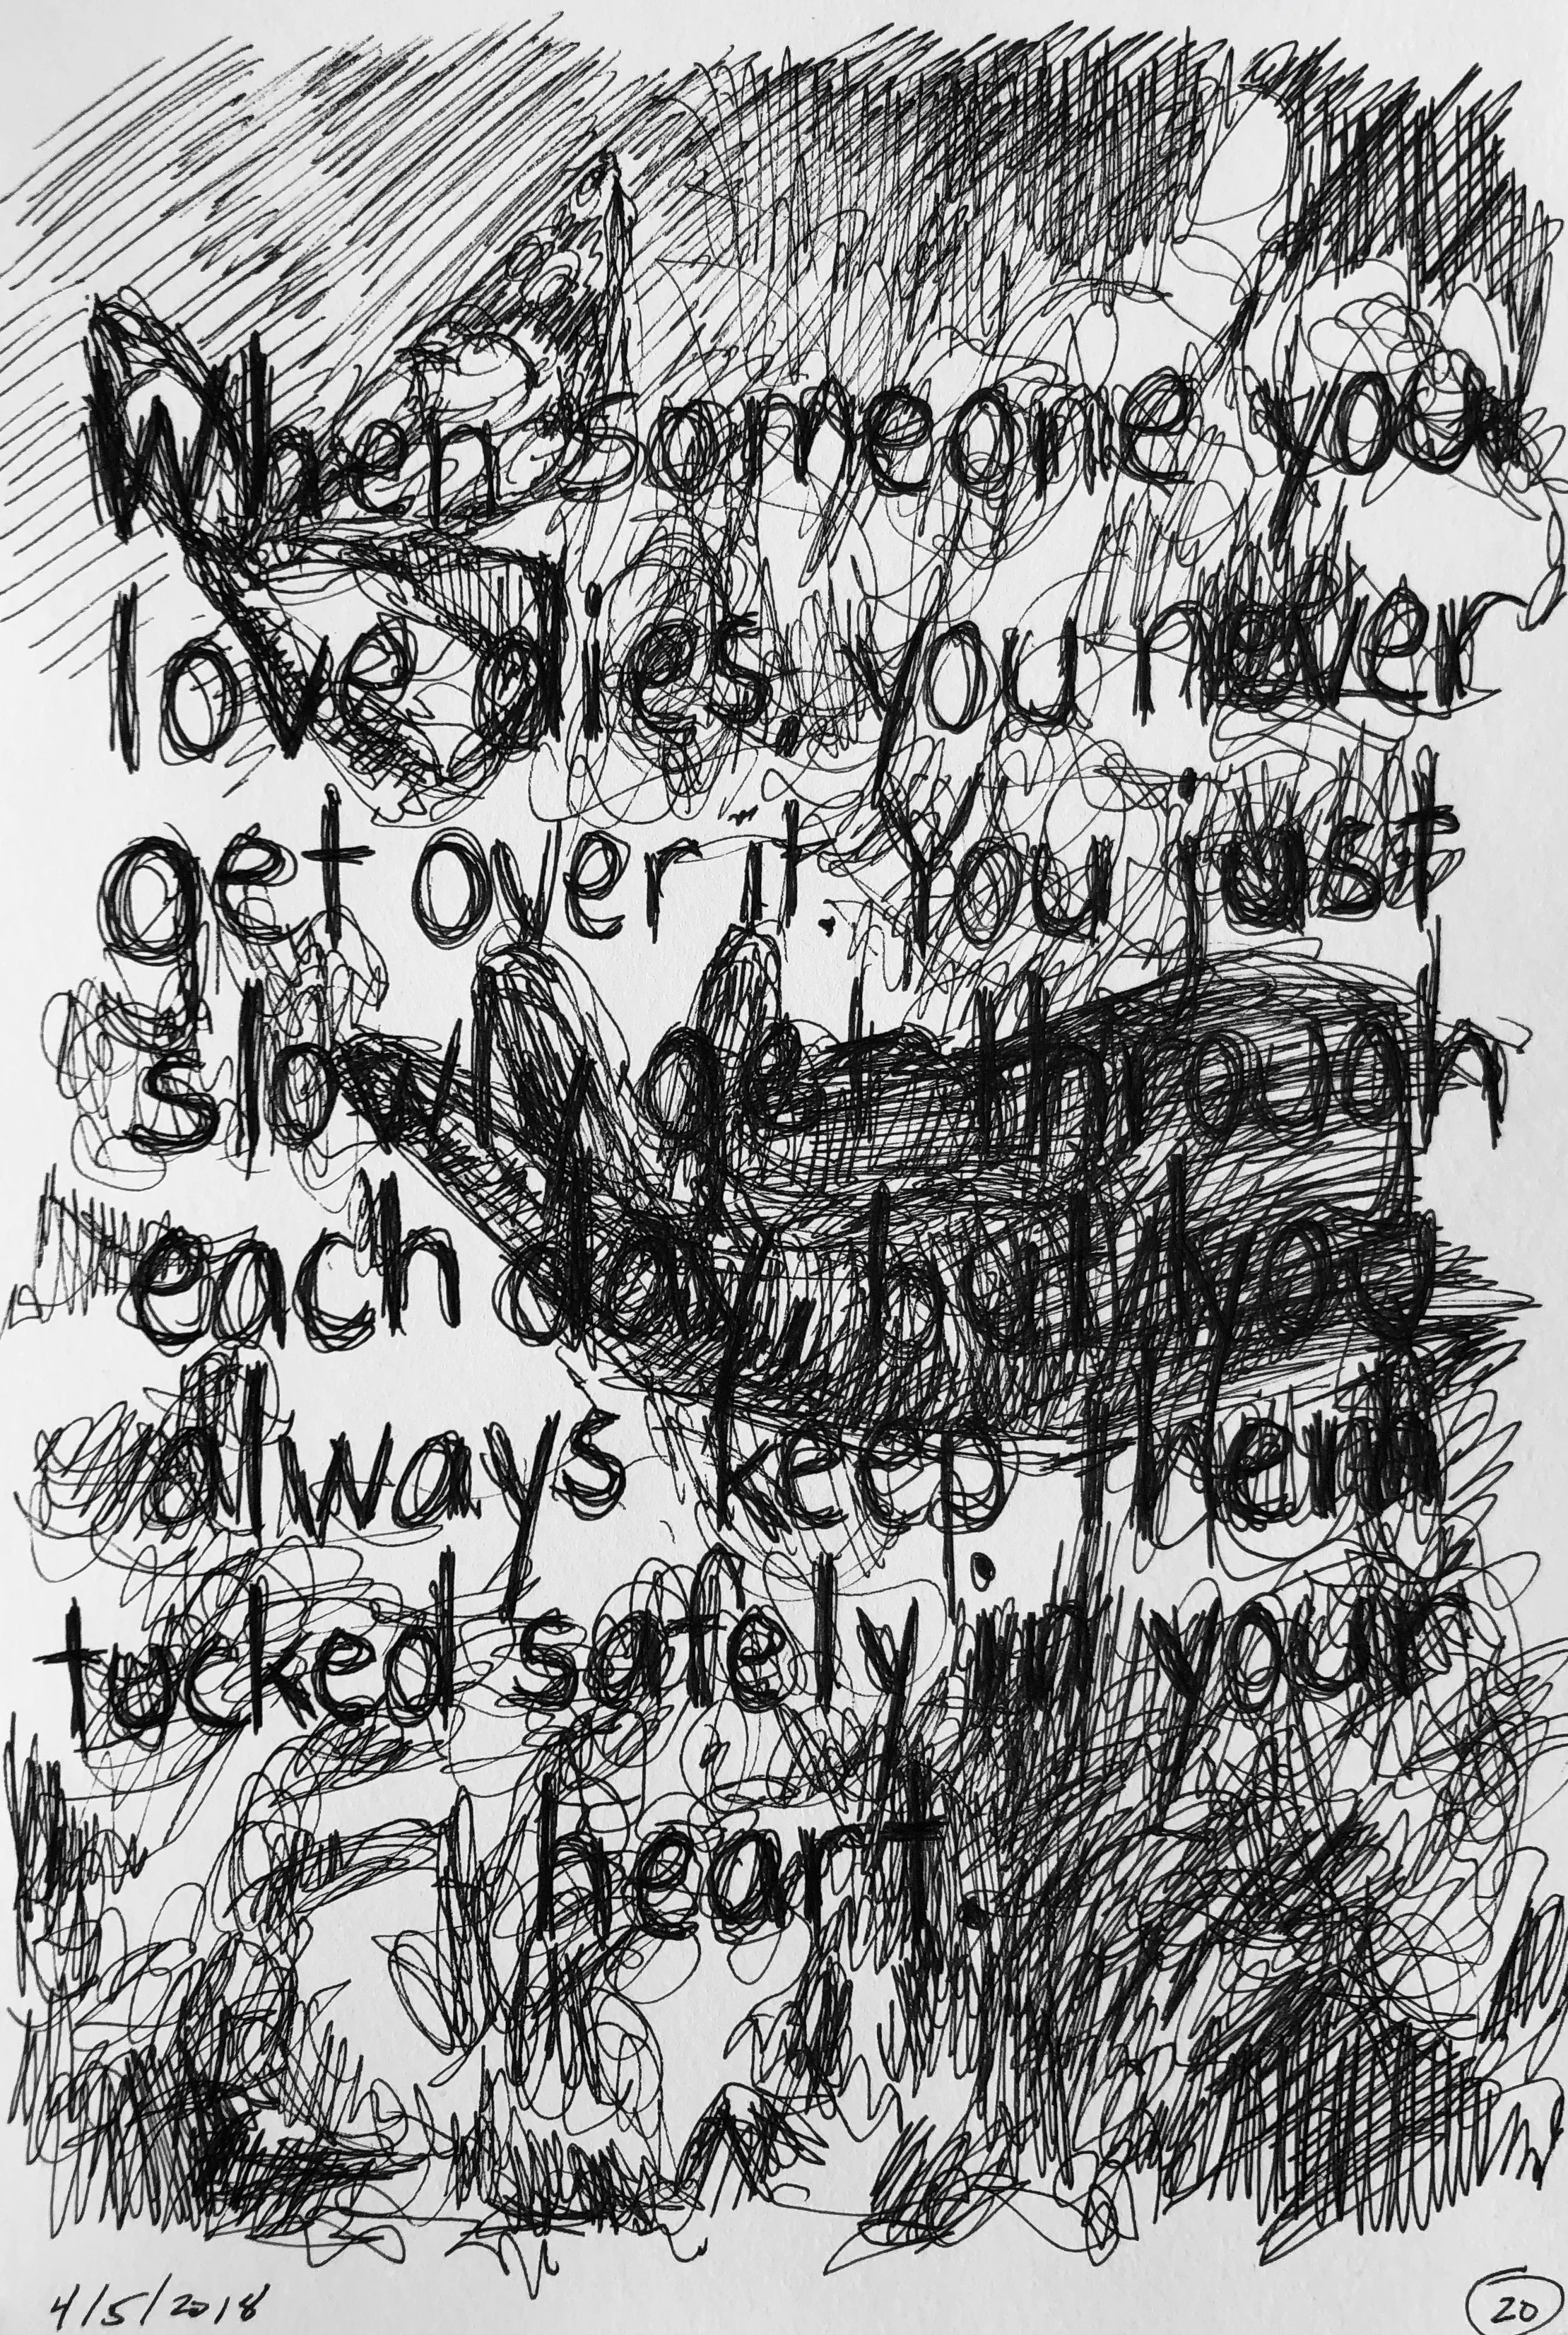 When someone you
love dies, you never
get over it. You just
slowly get through
each day, but you
always keep them
tucked safely in your
heart.
4/5/2018
20